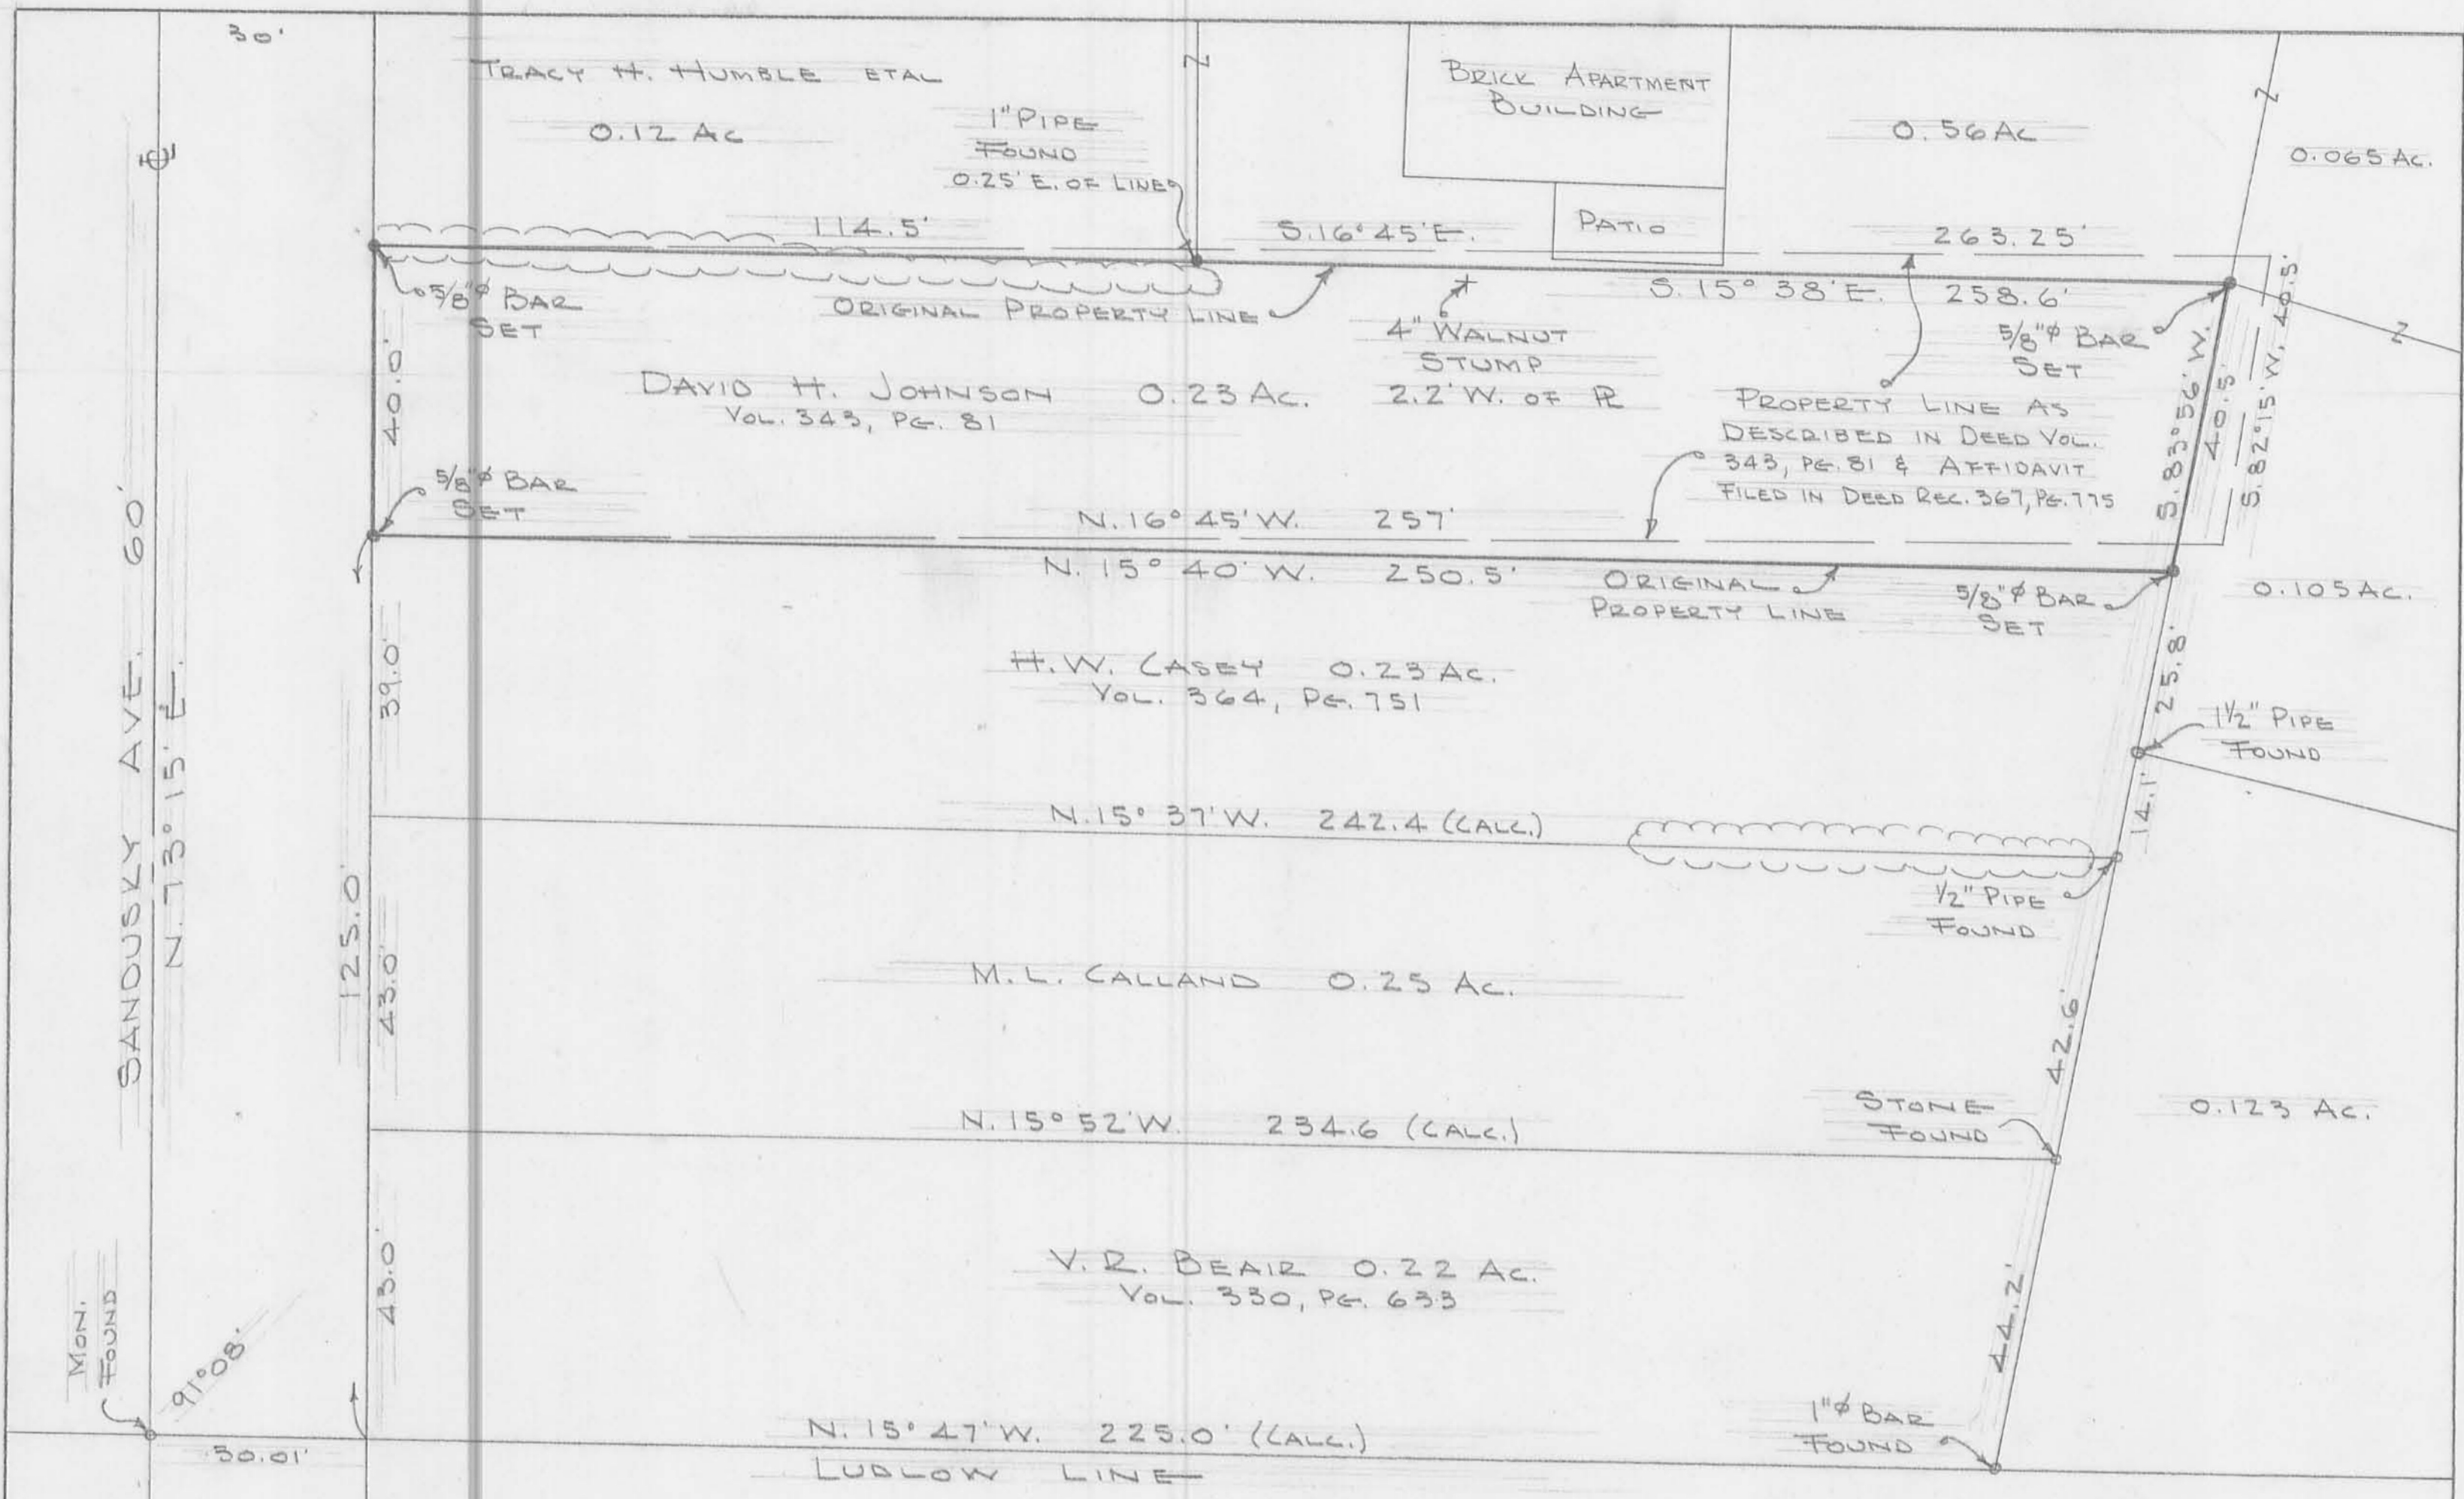 30'
TRACY H. HUMBLE ETAL
0.12 AC
1" PIPE
FOUND
0.25' E. OF LINE
BRICK APARTMENT
BUILDING
0.56 AC
0.065 AC.
114.5'
S.16°45'E.
PATIO
263.25'
5/8"ϕ BAR
SET
ORIGINAL PROPERTY LINE
4" WALNUT
STUMP
2.2' W. OF PL
S. 15° 38' E. 258.6'
5/8"ϕ BAR
SET
40.0'
DAVID H. JOHNSON 0.23 AC.
VOL. 343, PG. 81
PROPERTY LINE AS
DESCRIBED IN DEED VOL.
343, PG. 81 & AFFIDAVIT
FILED IN DEED REC. 367, PG. 775
S. 83°56' W.
40.5'
S. 82°15' W. 40.5'
5/8"ϕ BAR
SET
N. 16° 45' W. 257'
N. 15° 40' W. 250.5'
ORIGINAL
PROPERTY LINE
5/8"ϕ BAR
SET
0.105 AC.
SANDUSKY AVE. 60'
N. 73° 15' E.
39.0'
H. W. CASEY 0.23 AC.
VOL. 364, PG. 751
25.8'
1½" PIPE
FOUND
14.1'
N. 15° 37' W. 242.4 (CALC.)
½" PIPE
FOUND
125.0'
43.0'
M. L. CALLAND 0.25 AC.
42.6'
N. 15° 52' W. 234.6 (CALC.)
STONE
FOUND
0.123 AC.
43.0'
V. R. BEAIR 0.22 AC.
VOL. 330, PG. 633
44.2'
MON.
FOUND
91°08'
30.01'
N. 15° 47' W. 225.0' (CALC.)
LUDLOW LINE
1"ϕ BAR
FOUND